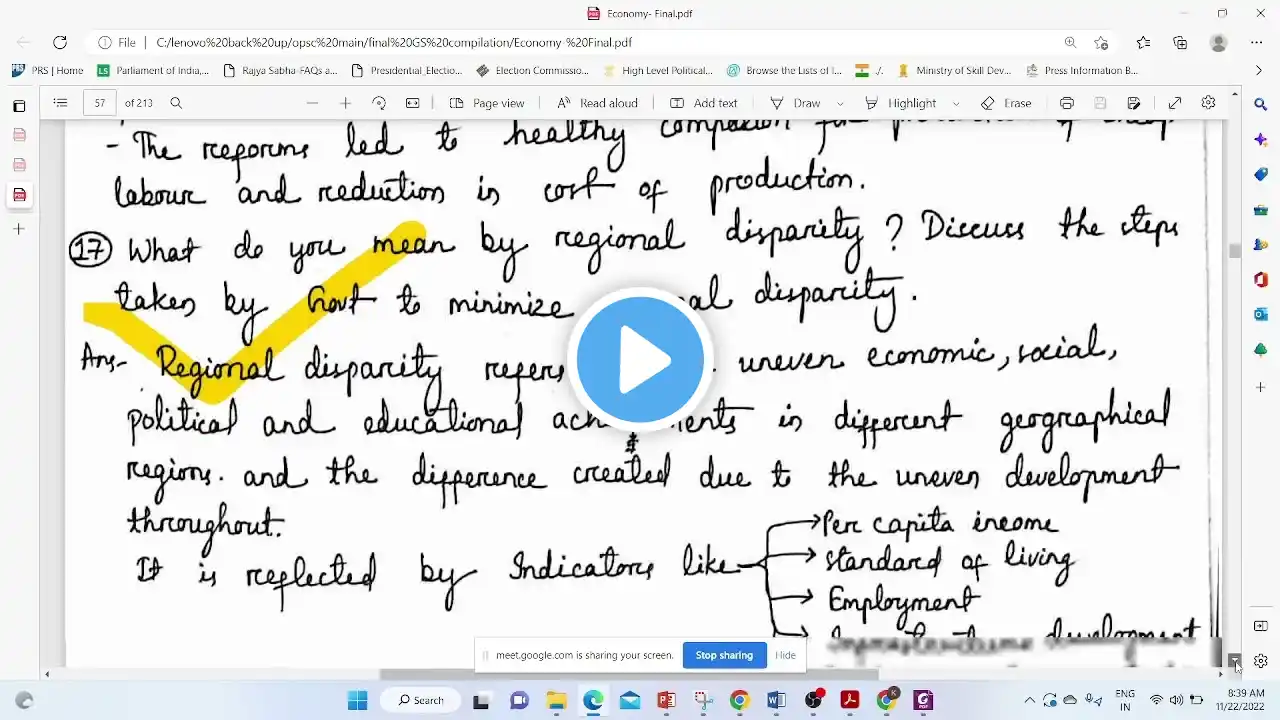 Economy- Final.pdf
File C:/lenovo%20back%20up/opsc main/final%20GS%20compilation/Economy %20Final.pdf
PRS | Home Parliament of India,... Rajya Sabha-FAQs... Presidential_Electio... Election Commissio... High Level Political... Browse the Lists of I... Ministry of Skill Dev... Press Information B...
57 of 213 Page view Read aloud Add text Draw Highlight Erase
- The reforms led to healthy of
labour and reduction in cost of production.
17 What do you mean by regional disparity? Discuss the steps
taken by Govt to minimize disparity.
Ans- Regional disparity refers uneven economic, social,
political and educational in different geographical
regions. and the difference created due to the uneven development
throughout.
It is reflected by Indicators like
Per capita income
standard of living
Employment
development
meet.google.com is sharing your screen. Stop sharing Hide
Search
ENG
IN
8:39 AM
11/22/2022